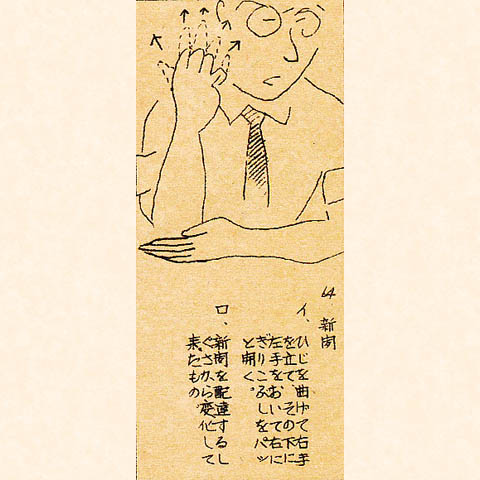 64. 新聞
イ、ひじを曲げて右手
を立て、その下に
左手をおいて右に
ぎりこぶしをパッ
と開く。
ロ、新聞を配達するし
ぐさから変化して
来たもの。